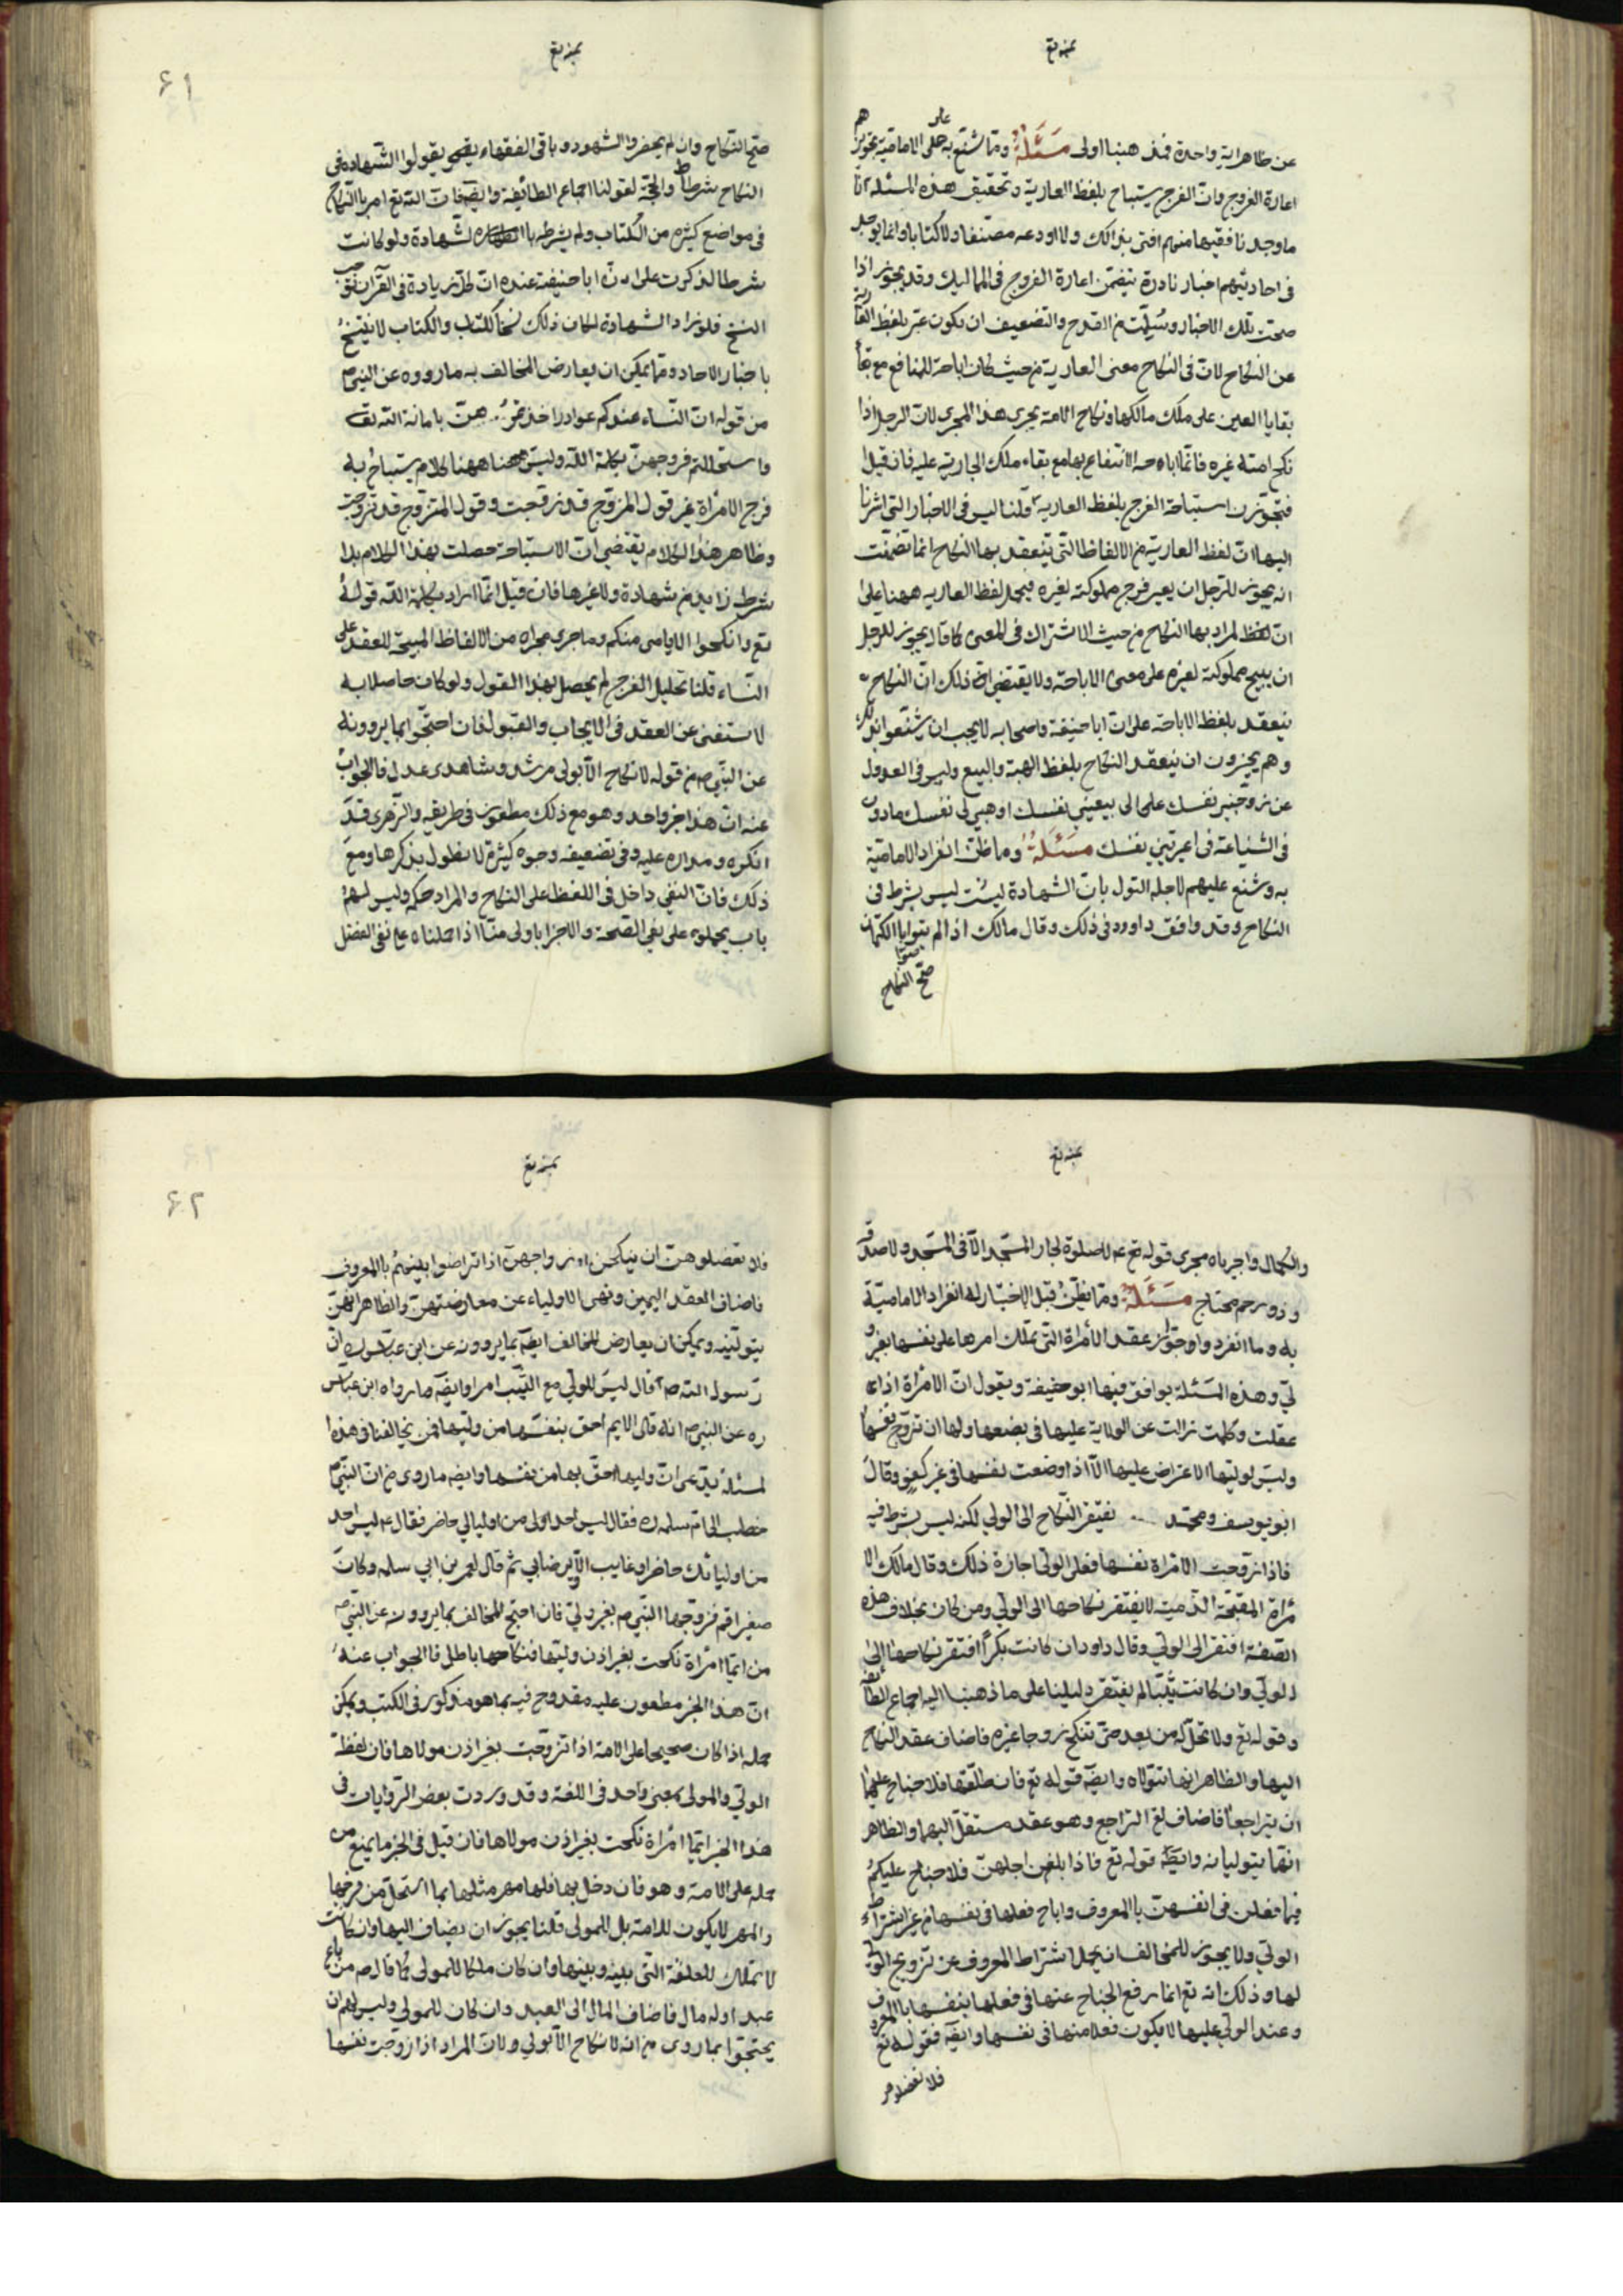 بمنه تع
عن ظاهر اية واحدة فمذهبنا اولى مسئلة ومما شنع به على الامامية تجويزهم
اعارة الفروج وان الفرج يستباح بلفظ العارية وتحقيق هذه المسئلة انا
ما وجدنا فقيها منهم افتى بذلك ولا اودعه مصنفا ولا كتابا وانما يوجد
فى احاديثهم اخبار نادرة يتضمن اعارة الفروج فى المماليك وقد يجوز اذا
صحت تلك الاخبار وسلمت من القدح والتضعيف ان يكون عبر بلفظ العارية
عن النكاح لان فى النكاح معنى العارية من حيث كان اباحة للمنافع مع بقا
بقايا العين على ملك مالكها ونكاح الامة يجرى هذا المجرى لان الرجل اذا
نكح امته غيره فانما اباحه الانتفاع بها مع بقاء ملك الجارية عليه فان قيل
فتجوزن استباحة الفرج بلفظ العارية قلنا ليس فى الاخبار التى اشرنا
اليها ان لفظ العارية من الالفاظ التى ينعقد بها النكاح انما تضمنت
انه يجوز للرجل ان يعير فرج مملوكته لغيره فيحمل لفظ العاريه ههنا على
ان لفظ لمراد بها النكاح من حيث الاشتراك فى المعنى كما قال يجوز للرجل
ان يبيح مملوكته لغيره على معنى الاباحة ولا يقتضى ذلك ان النكاح
ينعقد بلفظ الاباحة على ان ابا حنيفة واصحابه لا يجب ان يشنعوا بذلك
وهم يجيزون ان ينعقد النكاح بلفظ الهبة والبيع وليس فى العدول
عن زوجينى نفسك على الى بيعينى نفسك او هبى لى نفسك ما دون
فى الشناعة فى اعيرينى نفسك مسئلة وما ظن انفراد الامامية
به وشنع عليهم لاجله القول بان الشهادة ليست ليس بشرط فى
النكاح وقد وافق داوود فى ذلك وقال مالك اذا لم يتواصوا بالكتمان
صح النكاح
بمنه تع
٦١
صح النكاح وان لم يحضروا الشهود و باقى الفقهاء يقولوا الشهادة فى
النكاح شرط والحجة لقولنا اجماع الطائفة وايضا فان الله تع امر باالنكاح
فى مواضع كثيره من الكتاب ولم يشرطه باالشهادة ولو كانت
شرطا لذكرت على ان ابا حنيفة عنده ان كل زيادة فى القرآن توجب
النسخ فلو زاد الشهادة لكان ذلك نسخا للكتب والكتاب لا ينسخ
باخبار الاحاد ومما يمكن ان يعارض المخالف به ما رووه عن النبى ص
من قوله ان النساء عندكم عوار اخذتموهن بامانة الله تع
واستحللتم فروجهن بكلمة الله وليس ههنا كلام يستباح به
فرج الامرأة غير قول المزوج قد زوجت وقول المتزوج قد تزوجت
وظاهر هذا الكلام يقتضى ان الاستباحة حصلت بهذا الكلام بلا
شرط زايد من شهادة ولا غيرها فان قيل انما اراد بكلمة الله قوله
تع وانكحوا الايامى منكم وما جرى مجراه من الالفاظ المبيحة للعقد على
النساء قلنا تحليل الفرج لم يحصل بهذا القول ولو كان حاصلا به
لاستغنى عن العقد فى الايجاب والقبول فان احتجوا بما يروونه
عن النبى ص من قوله لا نكاح الا بولى مرشد وشاهدى عدل فالجواب
عنه ان هذا خبر واحد وهو مع ذلك مطعون فى طريقه والزهرى قد
انكره ومداره عليه وفى تضعيفه وجوه كثيرة لا نطول بذكرها ومع
ذلك فان النفى داخل فى اللفظ على النكاح والمراد حكمه وليس لهم
باب يحملوه على نفى الصحة والاجزا باولى منا اذا حملناه على نفى الفضل
بمنه تع
والكمال واجرياه مجرى قوله تع عم لا صلوة لجار المسجد الا فى المسجد ولا صدقه
وذو رحم محتاج مسئلة ومما يظن قبل الاختبار له انفراد الامامية
به وما انفردوا جواز عقد الامرأة التى تملك امرها على نفسها بغير و
لى وهذه المسئلة يوافق فيها ابو حنيفة ويقول ان الامرأة اذا
عقلت وكملت زالت عن الولاية عليها فى بضعها ولها ان تزوج نفسها
وليس لوليها الاعتراض عليها الا اذا وضعت نفسها فى غير كفو وقال
ابو يوسف ومحمد يفتقر النكاح الى الولى لكنه ليس بشرط فيه
فاذا تزوجت الامرأة نفسها فعلى الولى اجازة ذلك وقال مالك الا
مرأة المقبحة الذميمة لا يفتقر نكاحها الى الولى ومن كان بخلاف هذه
الصفة افتقر الى الولى وقال داود ان كانت بكرا افتقر نكاحها الى
لولى وان كانت ثيبا لم يفتقر دليلنا على ما ذهبنا اليه اجماع الطائفه
وقوله تع ولا تحل له من بعد حتى تنكح زوجا غيره فاضاف عقد النكاح
اليها والظاهر انها تتولاه وايضا قوله تع فان طلقها فلا جناح عليهما
ان يتراجعا فاضاف تع التراجع وهو عقد مستقل اليهما والظاهر
انهما يتوليانه وايضا قوله تع فاذا بلغن اجلهن فلا جناح عليكم
فيما فعلن فى انفسهن باالمعروف واباح فعلها فى نفسها من غير اشتراط
الولى ولا يجوز للمخالف ان يحمل اشتراط المعروف عن تزويج الولى
لها وذلك انه تع انما رفع الجناح عنها فى فعلها بنفسها باالمعروف
وعند الولى عليها لا يكون فعلا منها فى نفسها وايضا فقوله تع
فلا تعضلوهن
بمنه تع
٦٢
فلا تعضلوهن ان ينكحن ازواجهن اذا تراضوا بينهم باالمعروف
فاضاف العقد اليهن ونهى الاولياء عن معارضتهن والظاهر انهن
يتولينه ويمكن ان يعارض للمخالف ايضا بما يروونه عن ابن عباس ان
رسول الله ص قال ليس للولى مع الثيب امرا وايضا ما رواه ابن عباس
ره عن النبى ص انه قال الايم احق بنفسها من وليها فمن يخالفنا فى هذا
لمسئلة يدعى ان وليها احق بها من نفسها وايضا ما روى من ان النبى ص
خطب الى ام سلمه ره فقال ليس احد اولى من اوليالى حاضر فقال عم ليس احد
من اوليائك حاضرا وغايب الا ويرضا بى ثم قال لعمر بن ابى سلمه وكان
صغيرا قم فزوجها النبى ص بغير ولى فان احتج المخالف بما يروونه عن النبى ص
من ايما امرأة نكحت بغير اذن وليها فنكاحها باطل فا الجواب عنه
ان هذا الخبر مطعون عليه مقدوح فيه بما هو مذكور فى الكتب ويمكن
حمله اذا كان صحيحا على الامة اذا تزوجت بغير اذن مولاها فان لفظة
الولى والمولى بمعنى واحد فى اللغة وقد وردت بعض الروايات فى
هذا الخبر ايما امرأة نكحت بغير اذن مولاها فان قيل فى الخبر ما يمنع من
حمله على الامة وهو فان دخل بها فلها مهر مثلها بما استحل من فرجها
والمهر لا يكون للامة بل للمولى قلنا يجوز ان يضاف اليها وان كانت
لا تملك للعلقة التى بينه وبينها وان كان ملكا للمولى كما قال ص من باع
عبدا وله مال فاضاف المال الى العبد وان كان للمولى وليس لهم ان
يحتجوا بما روى من انه لا نكاح الا بولى ولان المراد اذا زوجت نفسها